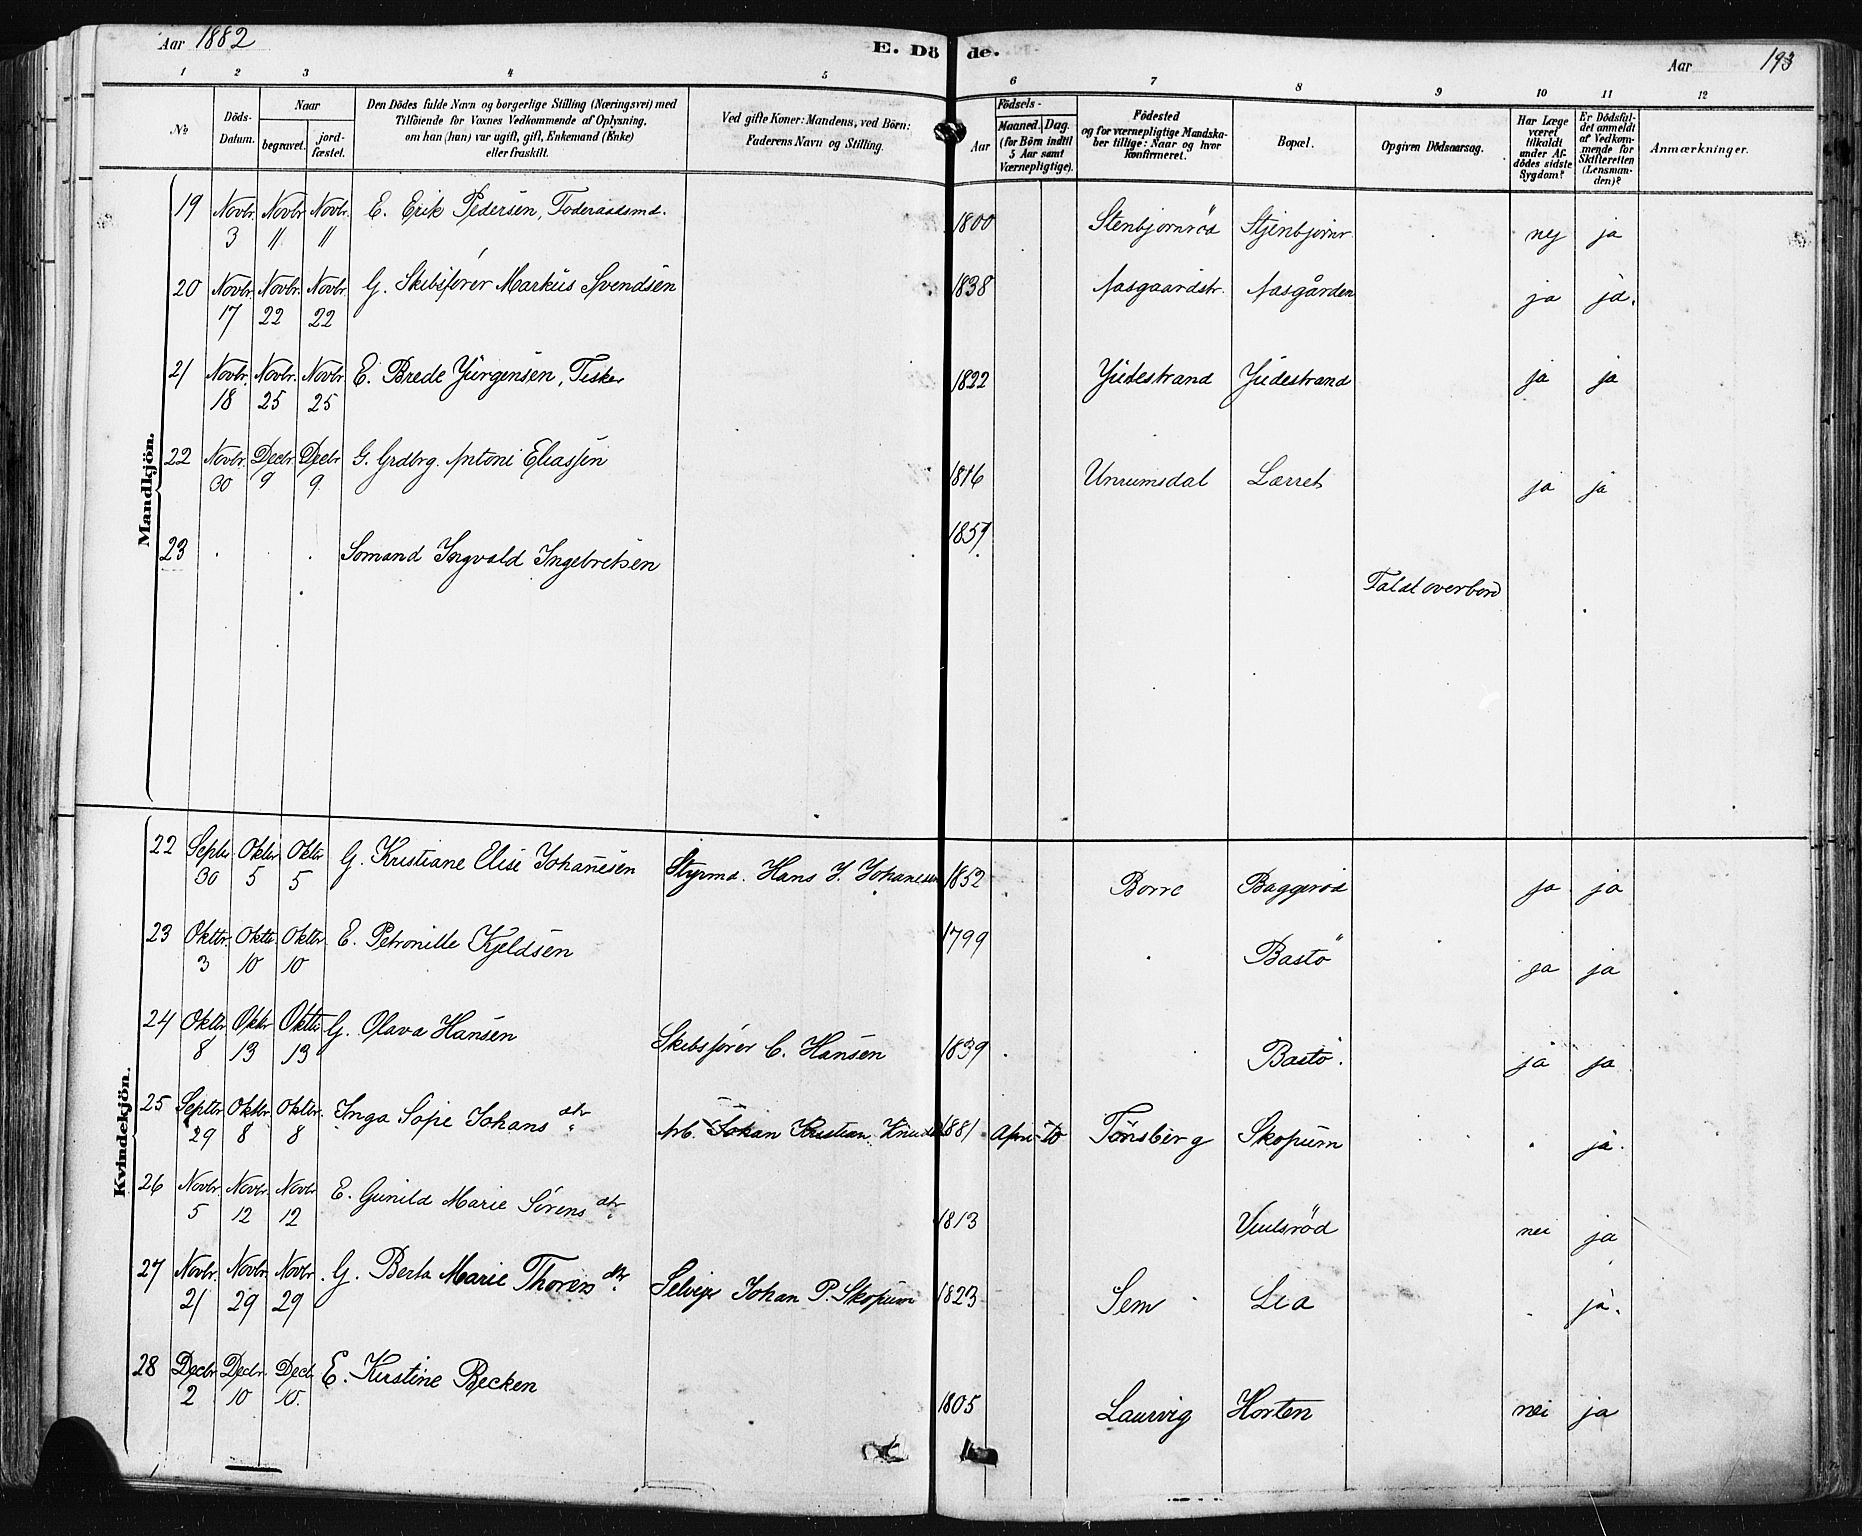 Aar 1882 E. Döde. Aar 193
1 2 3 4 5 6 7 8 9 10 11 12
№ Döds-Datum. Naar begravet. jord-fæstet. Den Dödes fulde Navn og borgerlige Stilling (Næringsvei) med Tilföiende for Voxnes Vedkommende af Oplysning, om han (hun) var ugift, gift, Enkemand (Enke) eller fraskilt. Ved gifte Koner: Mandens, ved Börn: Faderens Navn og Stilling. Födsels- Aar Maaned. Dag. (for Börn indtil 5 Aar samt Værnepligtige). Födested og for værnepligtige Mandska-ber tillige: Naar og hvor konfirmeret. Bopæl. Opgiven Dödsaarsag. Har Læge været tilkaldt under Af-dödes sidste Sygdom? Er Dödsfal-det anmeldt af Vedkom-mende for Skifteretten (Lensman-den)? Anmærkninger.
Mandkjön.
19 Novbr. 3 Novbr 11 Novbr. 11 E. Erik Pedersen, Foderaadsmd. 1800 Stenbjørnrød Stjenbjørnr. nej ja
20 Novbr. 17 Novbr. 22 Novbr. 22 G. Skibsfører Markus Svendsen 1838 Aasgaardstr. Aasgården ja ja.
21 Novbr. 18 Novbr. 25 Novbr. 25 E. Brede Jürgensen, Fisker 1822 ja ja
22 Novbr. 30 Decbr. 9 Decbr 9. G. Grdbrg. Antoni Eliassen 1816 Unrumsdal Lærret ja ja
23 Sømand Ingvald Ingebretsen 1857 Faldt overbord
Kvindekjön.
22 Septbr. 30 Oktbr 5 Oktbr 5 G. Kristiane Elise Johanesen Styrmd. Hans J. Johanesen 1852 Borre Baggerød ja ja
23 Oktbr. 3 Oktbr. 10 Oktbr. 10 E. Petronille Kjeldsen 1799 Bastø ja ja
24 Oktbr 8 Oktbr 13 Oktbr 13 G. Olava Hansen Skibsfører C. Hansen 1839 Bastø. ja ja
25 Septbr 29 Oktbr. 8 Oktbr. 8 Inga Sofie Johansdtr. Arb. Johan Kristian Knuds 1881 April 10 Tønsberg Skopum ja.
26 Novbr. 5 Novbr. 12 Novbr 12 E. Gunild Marie Sørensdtr. 1813 nei ja
27 Novbr. 21 Novbr. 29 Novbr. 29 G. Berta Marie Thorensdtr. Selvejer Johan P. Skopum 1823 Sem Lia ja.
28 Decbr 2 Decbr. 10 Decbr. 10. E. Kirstine Becken 1805 Laurvig Horten nei ja